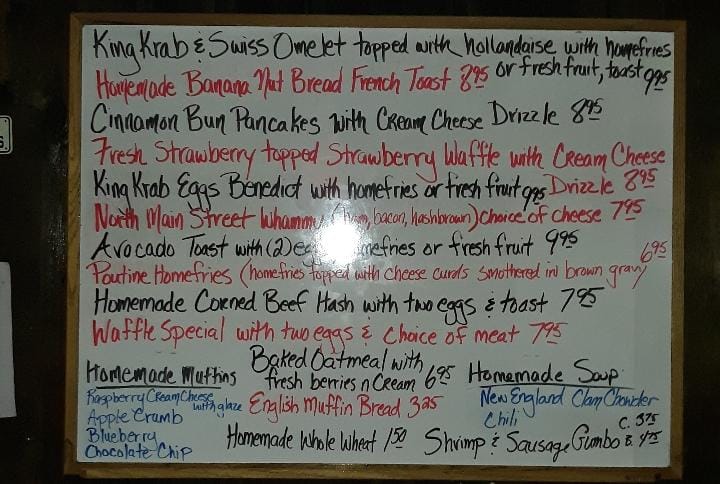 King Krab & Swiss Omelet topped with hollandaise with homefries
or fresh fruit, toast 9.95
Homemade Banana Nut Bread French Toast 8.95
Cinnamon Bun Pancakes with Cream Cheese Drizzle 8.95
Fresh Strawberry topped Strawberry Waffle with Cream Cheese
Drizzle 8.95
King Krab Eggs Benedict with homefries or fresh fruit 9.95
North Main Street Whammy (ham, bacon, hashbrown) choice of cheese 7.95
Avocado Toast with (2) homefries or fresh fruit 9.95
Poutine Homefries (homefries topped with cheese curds smothered in brown gravy 6.95
Homemade Corned Beef Hash with two eggs & toast 7.95
Waffle Special with two eggs & choice of meat 7.95
Homemade Muffins
Raspberry Cream Cheese
with glaze
Apple Crumb
Blueberry
Chocolate-Chip
Baked Oatmeal with
fresh berries n Cream 6.95
English Muffin Bread 3.25
Homemade Whole Wheat 1.50
Homemade Soup
New England Clam Chowder
Chili
Shrimp & Sausage Gumbo
C. 3.75
B. 4.75